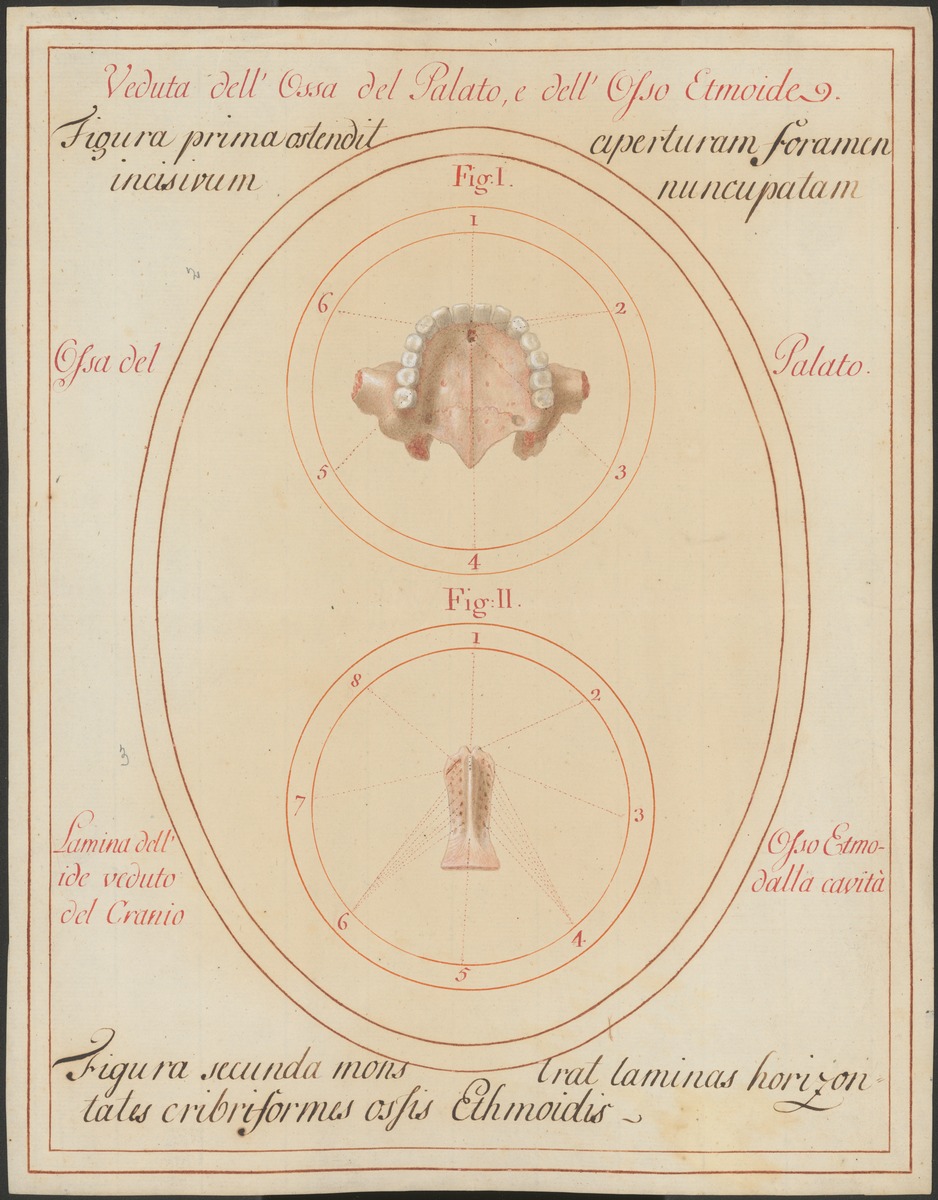 Veduta dell' Ossa del Palato, e dell' Osso Etmoide.
Figura prima ostendit aperturam foramen
incisivum nuncupatam
Fig: I.
1
6 2
Ossa del Palato.
5 3
4
Fig: II.
1
8 2
7 3
Lamina dell' Osso Etmo-
ide veduto dalla cavità
del Cranio
6 4.
5
Figura secunda mons trat laminas horizon-
tales cribriformes ossis Ethmoidis